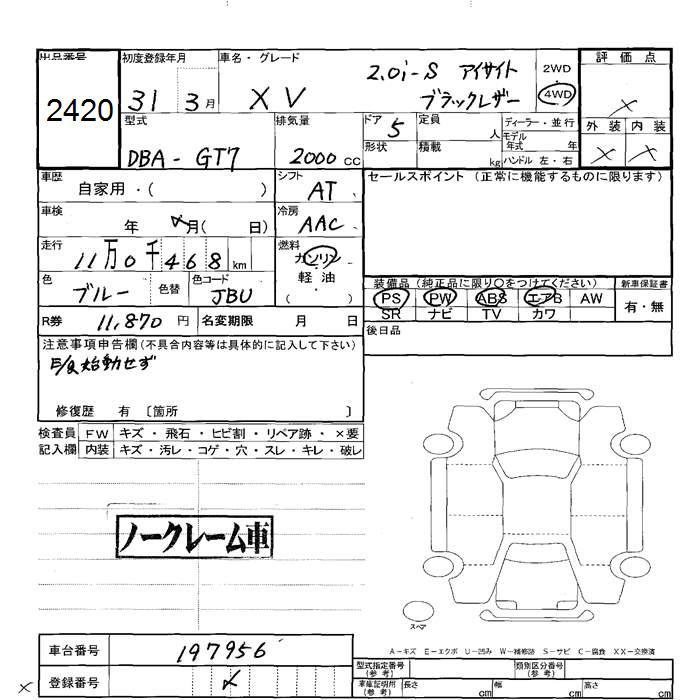 出品番号 2420
初度登録年月 31年 3月
車名・グレード XV 2.0i-S アイサイト
ブラックレザー
2WD
4WD
評価点
×
外装 内装
× ×
型式 DBA-GT7
排気量 2000cc
ドア 5
形状
定員 人
積載 kg
ディーラー・並行
モデル年式 年
ハンドル 左・右
車歴 自家用・( )
シフト AT
セールスポイント (正常に機能するものに限ります)
車検 年 月( 日)
冷房 AAC
走行 11万0千468km
燃料 ガソリン
軽・油
( )
色 ブルー 色替
色コード JBU
装備品 (純正品に限り○をつけてください)
新車保証書
PS PW ABS エアB AW
有・無
SR ナビ TV カワ
R券 11,870円 名変期限 月 日
後日品
注意事項申告欄 (不具合内容等は具体的に記入して下さい)
E/g始動せず
修復歴 有 〔箇所 〕
検査員 FW キズ・飛石・ヒビ割・リペア跡・×要
記入欄 内装 キズ・汚レ・コゲ・穴・スレ・キレ・破レ
ノークレーム車
スペア
A-キズ E-エクボ U-凹み W-補修跡 S-サビ C-腐食 XX-交換済
車台番号 197956
型式指定番号
(参考)
類別区分番号
(参考)
× 登録番号
車庫証明用
(参考)
長さ cm 幅 cm 高さ cm